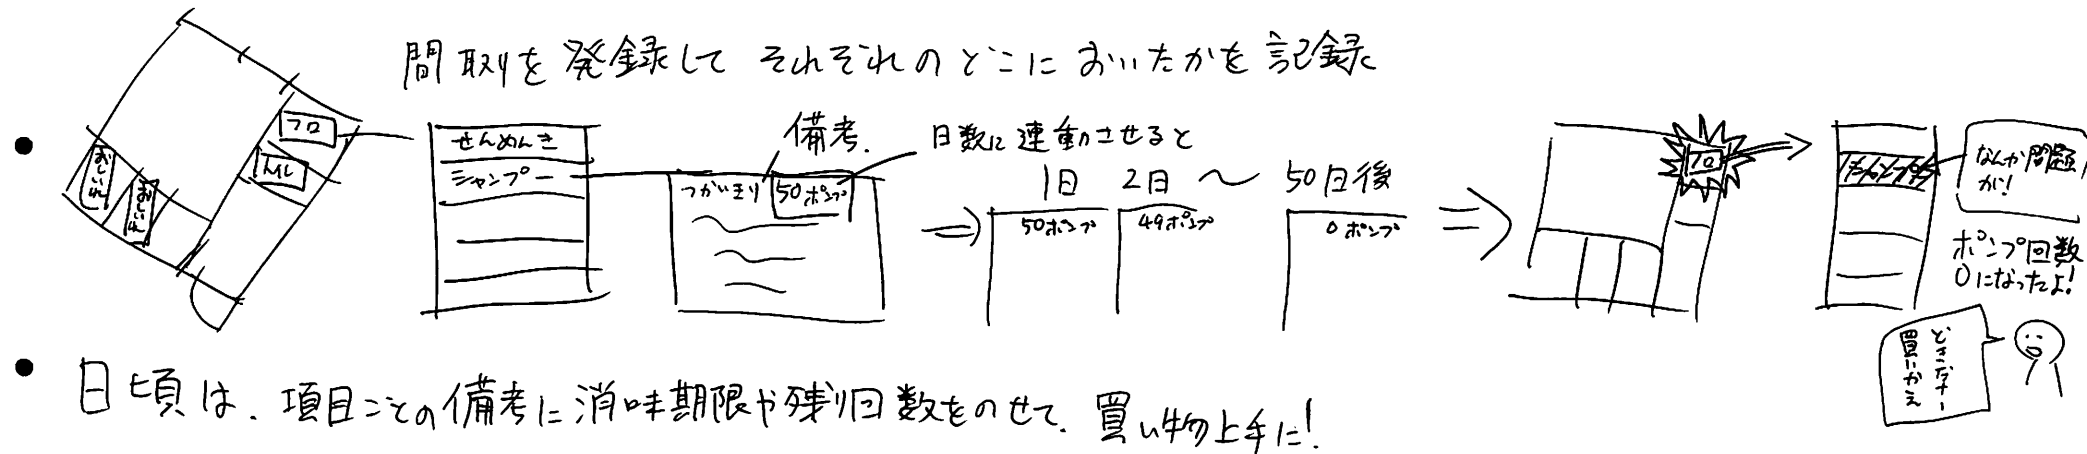 間取りを登録して それぞれのどこにおいたかを記録
フロ
トイレ
おしいれ
おしいれ
せんめんき
シャンプー
備考.
つかいきり
50ポンプ
日数に連動させると
1日 2日 〜 50日後
50ポンプ
49ポンプ
0ポンプ
フロ
シャンプー
なんか問題
か!
ポンプ回数
0になったよ!
買いかえ
日頃は、項目ごとの備考に消味期限や残り回数をのせて、買い物上手に!